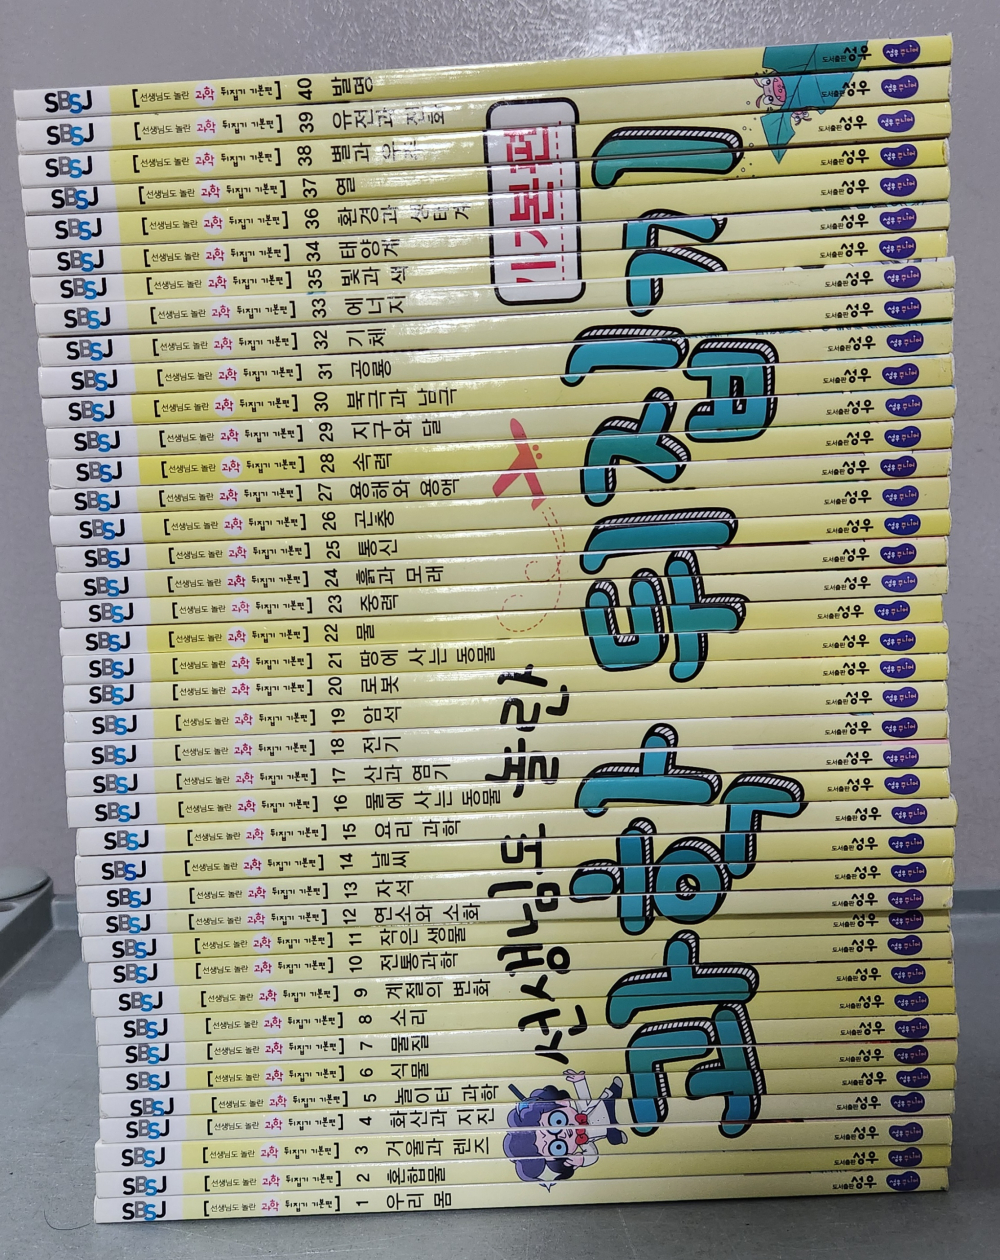 SBSJ [선생님도 놀란 과학 뒤집기 기본편] 40 발명 도서출판 성우 성우 주니어
SBSJ [선생님도 놀란 과학 뒤집기 기본편] 39 유전과 진화 도서출판 성우 성우 주니어
SBSJ [선생님도 놀란 과학 뒤집기 기본편] 38 별과 우주 도서출판 성우 성우 주니어
SBSJ [선생님도 놀란 과학 뒤집기 기본편] 37 열 도서출판 성우 성우 주니어
SBSJ [선생님도 놀란 과학 뒤집기 기본편] 36 환경과 생태계 도서출판 성우 성우 주니어
SBSJ [선생님도 놀란 과학 뒤집기 기본편] 34 태양계 도서출판 성우 성우 주니어
SBSJ [선생님도 놀란 과학 뒤집기 기본편] 35 빛과 색 도서출판 성우 성우 주니어
SBSJ [선생님도 놀란 과학 뒤집기 기본편] 33 에너지 도서출판 성우 성우 주니어
SBSJ [선생님도 놀란 과학 뒤집기 기본편] 32 기체 도서출판 성우 성우 주니어
SBSJ [선생님도 놀란 과학 뒤집기 기본편] 31 공룡 도서출판 성우 성우 주니어
SBSJ [선생님도 놀란 과학 뒤집기 기본편] 30 북극과 남극 도서출판 성우 성우 주니어
SBSJ [선생님도 놀란 과학 뒤집기 기본편] 29 지구와 달 도서출판 성우 성우 주니어
SBSJ [선생님도 놀란 과학 뒤집기 기본편] 28 속력 도서출판 성우 성우 주니어
SBSJ [선생님도 놀란 과학 뒤집기 기본편] 27 용해와 용액 도서출판 성우 성우 주니어
SBSJ [선생님도 놀란 과학 뒤집기 기본편] 26 곤충 도서출판 성우 성우 주니어
SBSJ [선생님도 놀란 과학 뒤집기 기본편] 25 통신 도서출판 성우 성우 주니어
SBSJ [선생님도 놀란 과학 뒤집기 기본편] 24 흙과 모래 도서출판 성우 성우 주니어
SBSJ [선생님도 놀란 과학 뒤집기 기본편] 23 중력 도서출판 성우 성우 주니어
SBSJ [선생님도 놀란 과학 뒤집기 기본편] 22 물 도서출판 성우 성우 주니어
SBSJ [선생님도 놀란 과학 뒤집기 기본편] 21 땅에 사는 동물 도서출판 성우 성우 주니어
SBSJ [선생님도 놀란 과학 뒤집기 기본편] 20 로봇 도서출판 성우 성우 주니어
SBSJ [선생님도 놀란 과학 뒤집기 기본편] 19 암석 도서출판 성우 성우 주니어
SBSJ [선생님도 놀란 과학 뒤집기 기본편] 18 전기 도서출판 성우 성우 주니어
SBSJ [선생님도 놀란 과학 뒤집기 기본편] 17 산과 염기 도서출판 성우 성우 주니어
SBSJ [선생님도 놀란 과학 뒤집기 기본편] 16 물에 사는 동물 도서출판 성우 성우 주니어
SBSJ [선생님도 놀란 과학 뒤집기 기본편] 15 요리 과학 도서출판 성우 성우 주니어
SBSJ [선생님도 놀란 과학 뒤집기 기본편] 14 날씨 도서출판 성우 성우 주니어
SBSJ [선생님도 놀란 과학 뒤집기 기본편] 13 자석 도서출판 성우 성우 주니어
SBSJ [선생님도 놀란 과학 뒤집기 기본편] 12 연소와 소화 도서출판 성우 성우 주니어
SBSJ [선생님도 놀란 과학 뒤집기 기본편] 11 작은 생물 도서출판 성우 성우 주니어
SBSJ [선생님도 놀란 과학 뒤집기 기본편] 10 전통과학 도서출판 성우 성우 주니어
SBSJ [선생님도 놀란 과학 뒤집기 기본편] 9 계절의 변화 도서출판 성우 성우 주니어
SBSJ [선생님도 놀란 과학 뒤집기 기본편] 8 소리 도서출판 성우 성우 주니어
SBSJ [선생님도 놀란 과학 뒤집기 기본편] 7 물질 도서출판 성우 성우 주니어
SBSJ [선생님도 놀란 과학 뒤집기 기본편] 6 식물 도서출판 성우 성우 주니어
SBSJ [선생님도 놀란 과학 뒤집기 기본편] 5 놀이터 과학 도서출판 성우 성우 주니어
SBSJ [선생님도 놀란 과학 뒤집기 기본편] 4 화산과 지진 도서출판 성우 성우 주니어
SBSJ [선생님도 놀란 과학 뒤집기 기본편] 3 거울과 렌즈 도서출판 성우 성우 주니어
SBSJ [선생님도 놀란 과학 뒤집기 기본편] 2 혼합물 도서출판 성우 성우 주니어
SBSJ [선생님도 놀란 과학 뒤집기 기본편] 1 우리 몸 도서출판 성우 성우 주니어
선생님도 놀란
과학 뒤집기
기본편